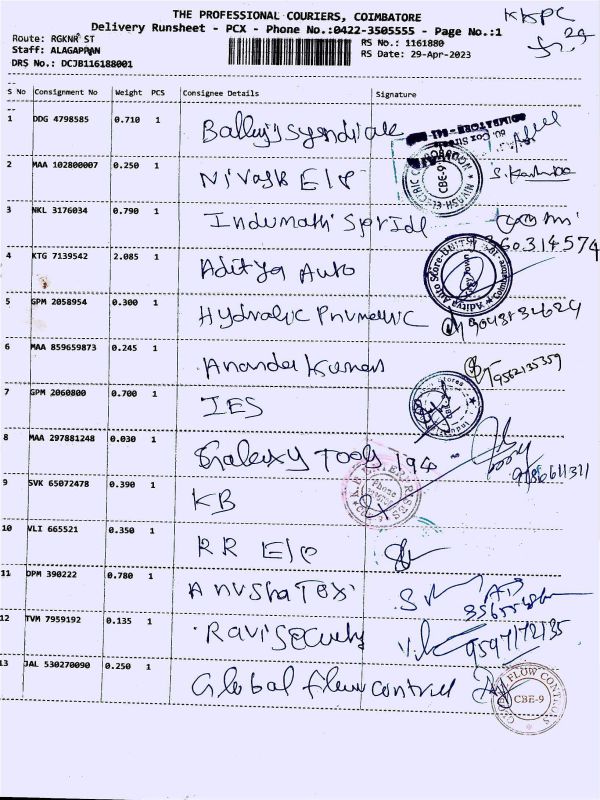 THE PROFESSIONAL COURIERS, COIMBATORE
Delivery Runsheet - PCX - Phone No.:0422-3505555 - Page No.:1
KKPC
Route: RGKNR ST
RS No.: 1161880
Staff: ALAGAPPAN
RS Date: 29-Apr-2023
DRS No.: DCJB116188001
S No Consignment No Weight PCS Consignee Details Signature
1 DDG 4798585 0.710 1 Balleyis Syndicate
2 MAA 102800007 0.250 1 Nivash E/P
CBE-9
3 NKL 3176034 0.790 1 Indumathi Spride
60314574
4 KTG 7139542 2.085 1 Aditya Auto
5 GPM 2058954 0.300 1 Hydralic Pnumetic
6 MAA 859659873 0.245 1 Ananda Kumar
9562135359
7 GPM 2060800 0.700 1 IES
8 MAA 297881248 0.030 1 Galaxy Tools 194
9 SVK 65072478 0.390 1 KB
10 VLI 665521 0.350 1 RR E/P
11 DPM 390222 0.780 1 Anusha Tex
12 TVM 7959192 0.135 1 Ravi Security
13 JAL 530270090 0.250 1 Global flow control
GLOBAL FLOW CONTROLS
CBE-9